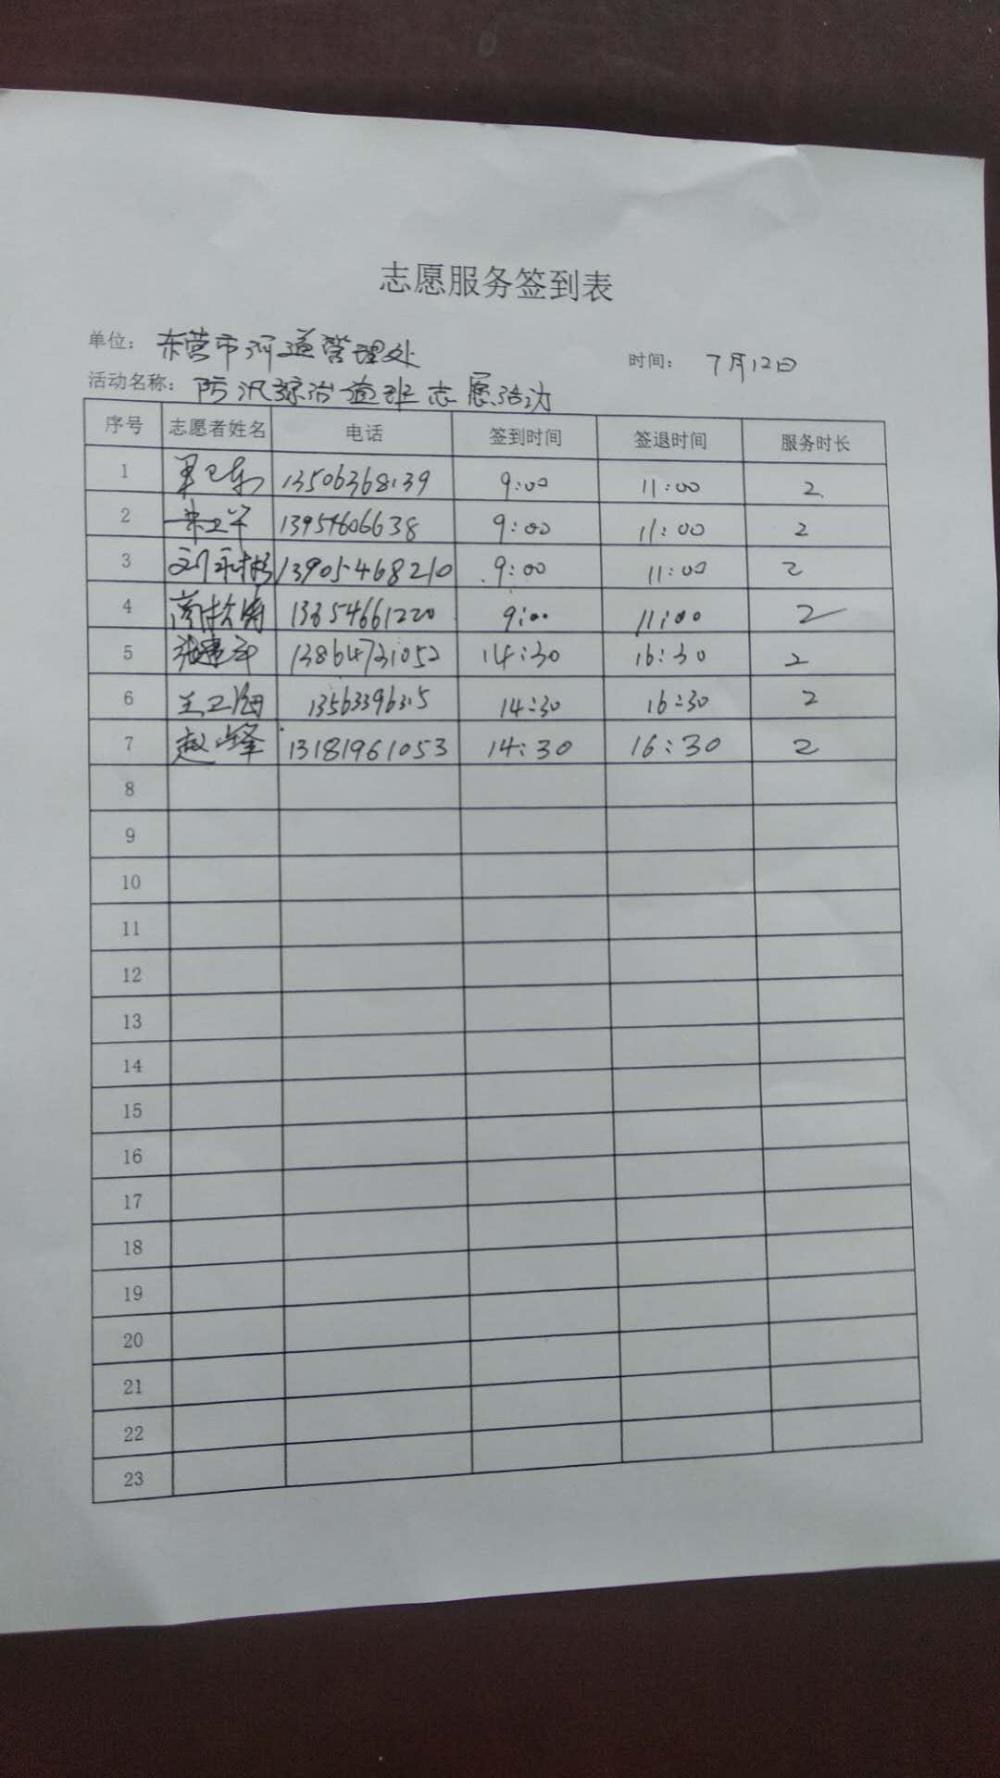 志愿服务签到表
单位：东营市河道管理处 时间：7月12日
活动名称：防汛 治 班志愿活动
序号 志愿者姓名 电话 签到时间 签退时间 服务时长
1 13506368139 9:00 11:00 2
2 13954606638 9:00 11:00 2
3 13905468210 9:00 11:00 2
4 13854661220 9:00 11:00 2
5 13864731052 14:30 16:30 2
6 王卫海 14:30 16:30 2
7 赵峰 13181961053 14:30 16:30 2
8
9
10
11
12
13
14
15
16
17
18
19
20
21
22
23